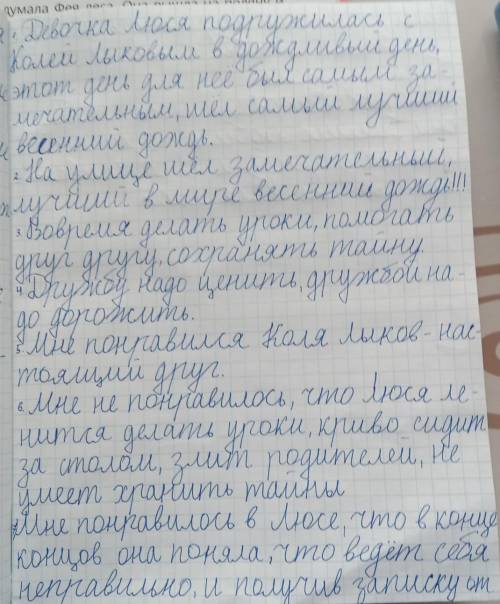 думала Фея леса. Она
1. Девочка Люся подружилась с
Колей Лыковым в дождливый день,
этот день для неё был самым за-
мечательным, шёл самый лучший
весенний дождь.
2. На улице шёл замечательный,
лучший в мире весенний дождь!!!
3. Вовремя делать уроки, помогать
друг другу, сохранять тайну.
4. Дружбу надо ценить, дружбой на-
до дорожить.
5. Мне понравился Коля Лыков - нас-
тоящий друг.
6. Мне не понравилось, что Люся ле-
нится делать уроки, криво сидит
за столом, злит родителей, не
умеет хранить тайны
7. Мне понравилось в Люсе, что в конце
концов она поняла, что ведёт себя
неправильно, и получив записку от